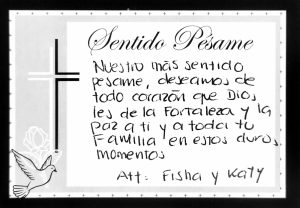 Sentido Pésame
Nuestro más sentido
pesame, deseamos de
todo corazón que Dios
les de la Fortaleza y la
paz a ti y a toda tu
Familia en estos duros
momentos
Att: Fisha y Katy